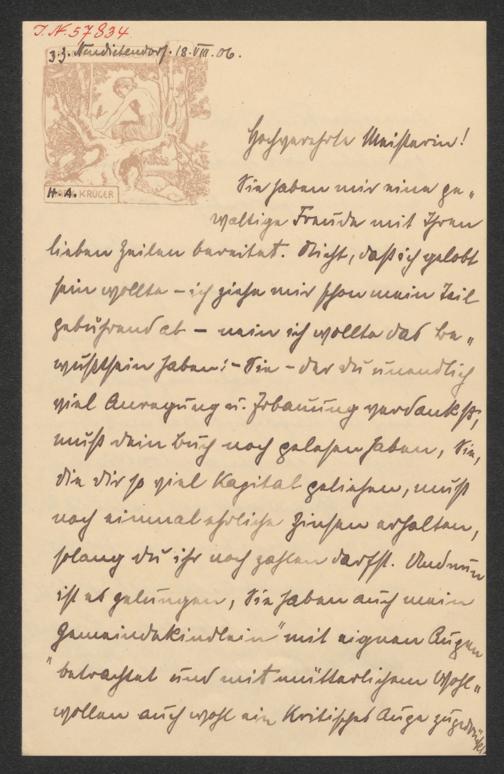 I.N. 57834
z. Z. Neudietendorf. 18. VIII. 06.
H. A. KRÜGER
Hochverehrte Meisterin!
Sie haben mir eine ge„
waltige Freude mit Ihren
lieben Zeilen bereitet. Nicht, daß ich gelobt
sein wollte – ich ziehe mir schon mein Teil
gebührend ab – nein ich wollte das be„
wußtsein haben: – Sie – der du unendlich
viel Anregung u. Erbauung verdankst,
muß dein Buch noch gelesen haben, Sie,
die dir so viel Kapital geliehen, muß
noch einmal ehrliche Zinsen erhalten,
solang du ihr noch zahlen darfst. Und nun
ist es gelungen, Sie haben auch mein
Gemeindekindlein" mit eignen Augen
"betrachtet und mit mütterlichem Wohl„
wollen auch wohl ein kritisches Auge zugedrückt